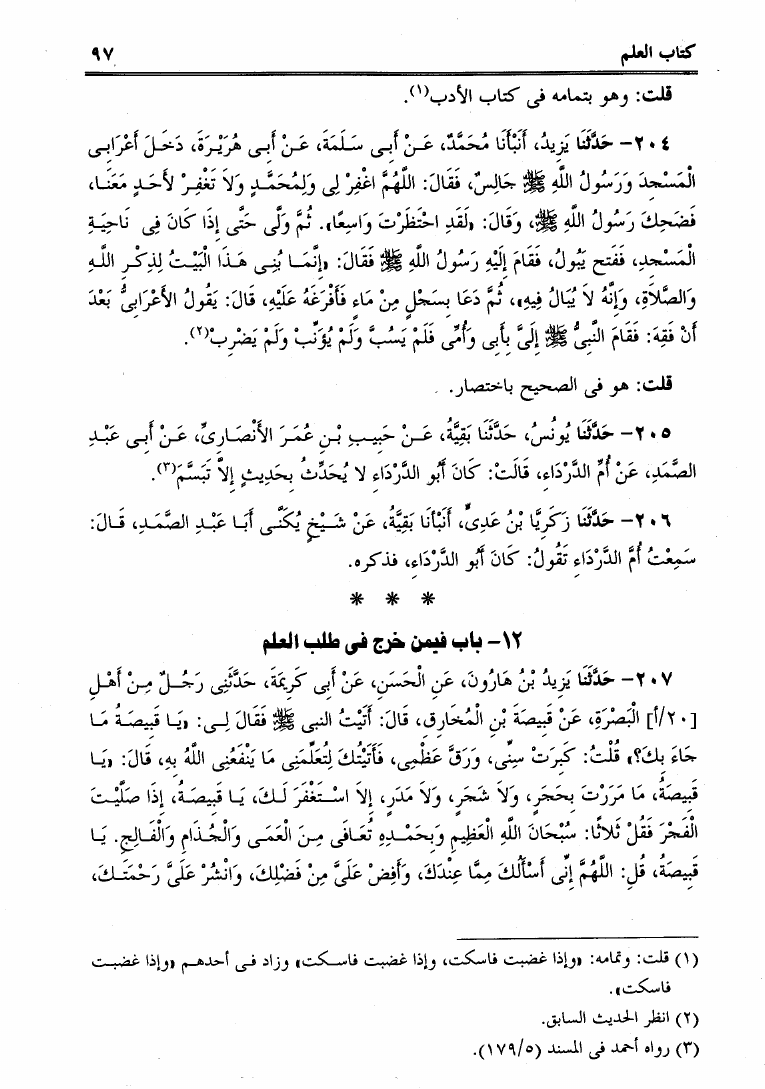 كتاب العلم ٩٧
قلت: وهو بتمامه فى كتاب الأدب(١).
٢٠٤- حَدَّثَنَا يَزِيدُ، أَنْبَأَنَا مُحَمَّدٌ، عَنْ أَبِى سَلَمَةَ، عَنْ أَبِى هُرَيْرَةَ، دَخَلَ أَعْرَابِى
الْمَسْجِدَ وَرَسُولُ اللَّهِ ﷺ جَالِسٌ، فَقَالَ: اللَّهُمَّ اغْفِرْ لِى وَلِمُحَمَّدٍ وَلاَ تَغْفِرْ لأَحَدٍ مَعَنَا،
فَضَحِكَ رَسُولُ اللَّهِ ﷺ، وَقَالَ: «لَقَدِ احْتَظَرْتَ وَاسِعًا». ثُمَّ وَلَّى حَتَّى إِذَا كَانَ فِى نَاحِيَةِ
الْمَسْجِدِ، فَفَتح يَبُولُ، فَقَامَ إِلَيْهِ رَسُولُ اللَّهِ ﷺ فَقَالَ: «إِنَّمَا بُنِى هَذَا الْبَيْتُ لِذِكْرِ اللَّهِ
وَالصَّلاَةِ، وَإِنَّهُ لاَ يُبَالُ فِيهِ»، ثُمَّ دَعَا بِسَجْلٍ مِنْ مَاءٍ فَأَفْرَغَهُ عَلَيْهِ، قَالَ: يَقُولُ الأَعْرَابِىُّ بَعْدَ
أَنْ فَقِهَ: فَقَامَ النَّبِىُّ ﷺ إِلَىَّ بِأَبِى وَأُمِّى فَلَمْ يَسُبَّ وَلَمْ يُؤَنِّبْ وَلَمْ يَضْرِبْ(٢).
قلت: هو فى الصحيح باختصار.
٢٠٥- حَدَّثَنَا يُونُسُ، حَدَّثَنَا بَقِيَّةُ، عَنْ حَبِيبِ بْنِ عُمَرَ الأَنْصَارِىِّ، عَنْ أَبِى عَبْدِ
الصَّمَدِ، عَنْ أُمِّ الدَّرْدَاءِ، قَالَتْ: كَانَ أَبُو الدَّرْدَاءِ لا يُحَدِّثُ بِحَدِيثٍ إِلاَّ تَبَسَّمَ(٣).
٢٠٦- حَدَّثَنَا زَكَرِيَّا بْنُ عَدِىٍّ، أَنْبَأَنَا بَقِيَّةُ، عَنْ شَيْخٍ يُكَنَّى أَبَا عَبْدِ الصَّمَدِ، قَالَ:
سَمِعْتُ أُمَّ الدَّرْدَاءِ تَقُولُ: كَانَ أَبُو الدَّرْدَاءِ، فذكره.
* * *
١٢- باب فيمن خرج فى طلب العلم
٢٠٧- حَدَّثَنَا يَزِيدُ بْنُ هَارُونَ، عَنِ الْحَسَنِ، عَنْ أَبِى كَرِيمَةَ، حَدَّثَنِى رَجُلٌ مِنْ أَهْلِ
[٢٠/أ] الْبَصْرَةِ، عَنْ قَبِيصَةَ بْنِ الْمُخَارِقِ، قَالَ: أَتَيْتُ النبى ﷺ فَقَالَ لِى: «يَا قَبِيصَةُ مَا
جَاءَ بِكَ؟» قُلْتُ: كَبِرَتْ سِنِّى، وَرَقَّ عَظْمِى، فَأَتَيْتُكَ لِتُعَلِّمَنِى مَا يَنْفَعُنِى اللَّهُ بِهِ، قَالَ: «يَا
قَبِيصَةُ، مَا مَرَرْتَ بِحَجَرٍ، وَلاَ شَجَرٍ، وَلاَ مَدَرٍ، إِلاَّ اسْتَغْفَرَ لَكَ، يَا قَبِيصَةُ، إِذَا صَلَّيْتَ
الْفَجْرَ فَقُلْ ثَلاَثًا: سُبْحَانَ اللَّهِ الْعَظِيمِ وَبِحَمْدِهِ تُعَافَى مِنَ الْعَمَى وَالْجُذَامِ وَالْفَالِجِ. يَا
قَبِيصَةُ، قُلِ: اللَّهُمَّ إِنِّى أَسْأَلُكَ مِمَّا عِنْدَكَ، وَأَفِضْ عَلَىَّ مِنْ فَضْلِكَ، وَانْشُرْ عَلَىَّ رَحْمَتَكَ،
(١) قلت: وتمامه: «وإذا غضبت فاسكت، وإذا غضبت فاسكت» وزاد فى أحدهم «وإذا غضبت
فاسكت».
(٢) انظر الحديث السابق.
(٣) رواه أحمد فى المسند (١٧٩/٥).